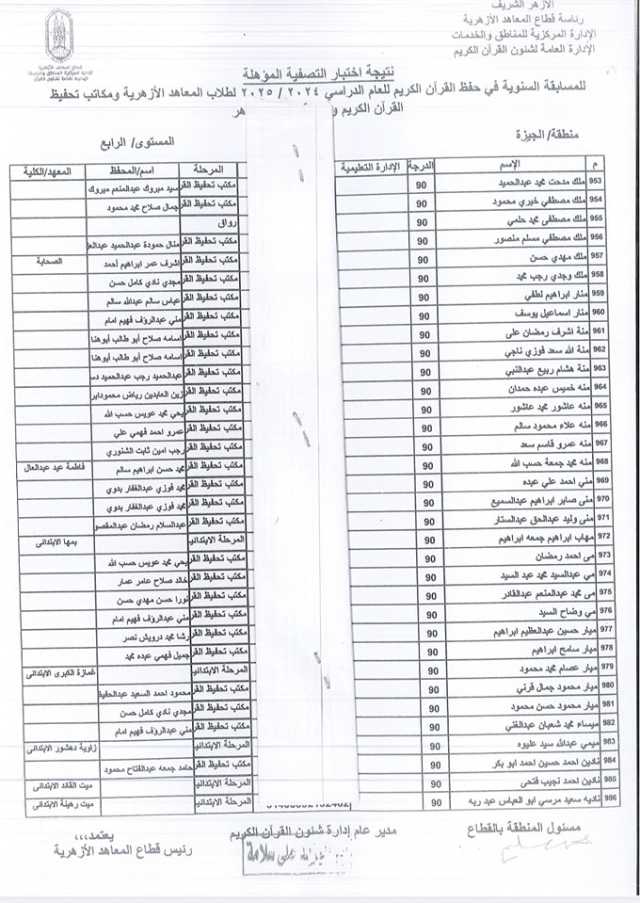 الأزهر الشريف
رئاسة قطاع المعاهد الأزهرية
الإدارة المركزية للمناطق والخدمات
الإدارة العامة لشئون القرآن الكريم
نتيجة اختبار التصفية المؤهلة
للمسابقة السنوية في حفظ القرآن الكريم للعام الدراسي ٢٠٢٤ / ٢٠٢٥ لطلاب المعاهد الأزهرية ومكاتب تحفيظ
القرآن الكريم و هر
منطقة/ الجيزة المستوى/ الرابع
م الإسم الدرجة الإدارة التعليمية المرحلة اسم/المحفظ المعهد/الكلية
953 ملك مدحت محمد عبدالحميد 90 مكتب تحفيظ القر سيد مبروك عبدالمنعم مبروك
954 ملك مصطفي خيري محمود 90 مكتب تحفيظ القر جمال صلاح محمد محمود
955 ملك مصطفى محمد حلمي 90 رواق
956 ملك مصطفي مسلم منصور 90 مكتب تحفيظ القر منال حمودة عبدالحميد عبدالع
957 ملك مهدي حسن 90 مكتب تحفيظ القر اشرف عمر ابراهيم أحمد الصحابة
958 ملك وجدي رجب محمد 90 مكتب تحفيظ القر مجدي نادي كامل حسن
959 منار ابراهيم لطفي 90 مكتب تحفيظ القر عباس سالم عبدالله سالم
960 منار اسماعيل يوسف 90 مكتب تحفيظ القر مني عبدالرؤف فهيم امام
961 منة اشرف رمضان على 90 مكتب تحفيظ القر اسامه صلاح أبو طالب أبوهنا
962 منة الله سعد فوزي ناجي 90 مكتب تحفيظ القر اسامه صلاح أبو طالب أبوهنا
963 منة هشام ربيع عبدالنبي 90 مكتب تحفيظ القر عبدالحميد رجب عبدالحميد دس
964 منه خميس عبده حمدان 90 مكتب تحفيظ القر زين العابدين رياض محمودابر
965 منه عاشور محمد عاشور 90 مكتب تحفيظ القر يحي محمد عويس حسب الله
966 منه علاء محمود سالم 90 مكتب تحفيظ القر عمرو احمد فهمي علي
967 منه عمرو قاسم سعد 90 مكتب تحفيظ القر رجب امين ثابت الشنوري
968 منه محمد جمعة حسب الله 90 مكتب تحفيظ القر محمد حسن ابراهيم سالم فاطمة عيد عبدالعال
969 مني احمد علي عبده 90 مكتب تحفيظ القر محمد فوزي عبدالغفار بدوي
970 منى صابر ابراهيم عبدالسميع 90 مكتب تحفيظ القر محمد فوزي عبدالغفار بدوي
971 منى وليد عبدالحق عبدالستار 90 مكتب تحفيظ القر عبدالسلام رمضان عبدالمقصو
972 مهاب ابراهيم جمعه ابراهيم 90 المرحلة الابتدائي بمها الابتدائى
973 مى احمد رمضان 90 مكتب تحفيظ القر يحي محمد عويس حسب الله
974 مي عبدالسيد محمد عبد السيد 90 مكتب تحفيظ القر خالد صلاح عامر عمار
975 مى محمد عبدالمنعم عبدالقادر 90 مكتب تحفيظ القر نورا حسن مهدي حسن
976 مي وضاح السيد 90 مكتب تحفيظ القر مني عبدالرؤف فهيم امام
977 ميار حسين عبدالعظيم ابراهيم 90 مكتب تحفيظ القر رشا محمد درويش نصر
978 ميار سامح ابراهيم 90 مكتب تحفيظ القر جميل فهمي عبده محمد
979 ميار عصام محمد محمود 90 المرحلة الابتدائي غمازة الكبرى الابتدائى
980 ميار محمود جمال قرني 90 مكتب تحفيظ القر محمود احمد السعيد عبدالحفيظ
981 ميار محمود حسن محمود 90 مكتب تحفيظ القر مجدي نادي كامل حسن
982 ميساء محمد شعبان عبدالغني 90 مكتب تحفيظ القر مني عبدالرؤف فهيم امام
983 ميمي عبدالله سيد عليوه 90 المرحلة الابتدائي زاوية دهشور الابتدائى
984 نادين احمد حسين احمد ابو بكر 90 مكتب تحفيظ القر حامد جمعه عبدالفتاح محمود
985 نادين احمد نجيب فتحى 90 المرحلة الابتدائي ميت القائد الابتدائى
986 ناديه سعيد مرسي ابو العباس عبد ربه 90 المرحلة الابتدائي ميت رهينة الابتدائى
مسئول المنطقة بالقطاع مدير عام إدارة شئون القرآن الكريم يعتمد،،،
رئيس قطاع المعاهد الأزهرية
علي سلامة